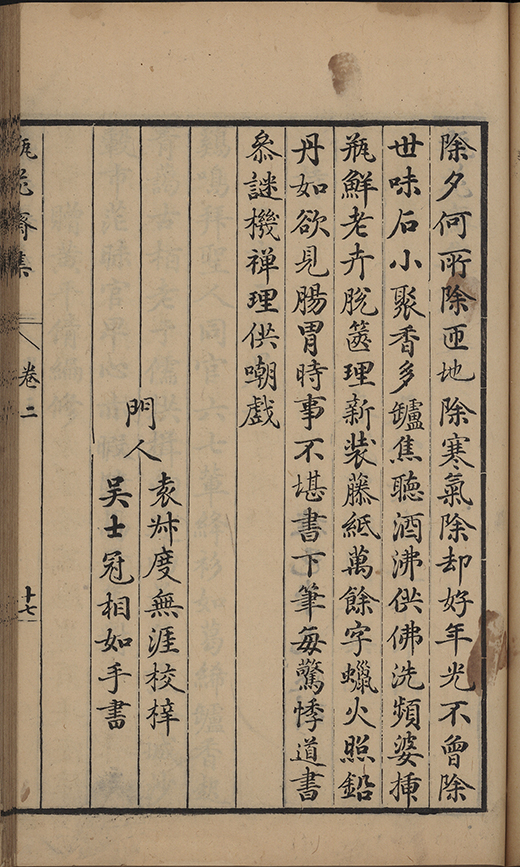 除夕何所除匝地除寒氣除却好年光不曾除
世味石小聚香多罏焦聴酒沸供佛洗頻婆揷
瓶鮮老卉脫篋理新裝藤紙萬餘字蠟火照鉛
丹如欲見腸胃時事不堪書下筆每驚悸道書
叅謎機禪理供嘲戲
門人
袁叔度無涯校梓
吳士冠相如手書
瓶花齋集
卷二
十七